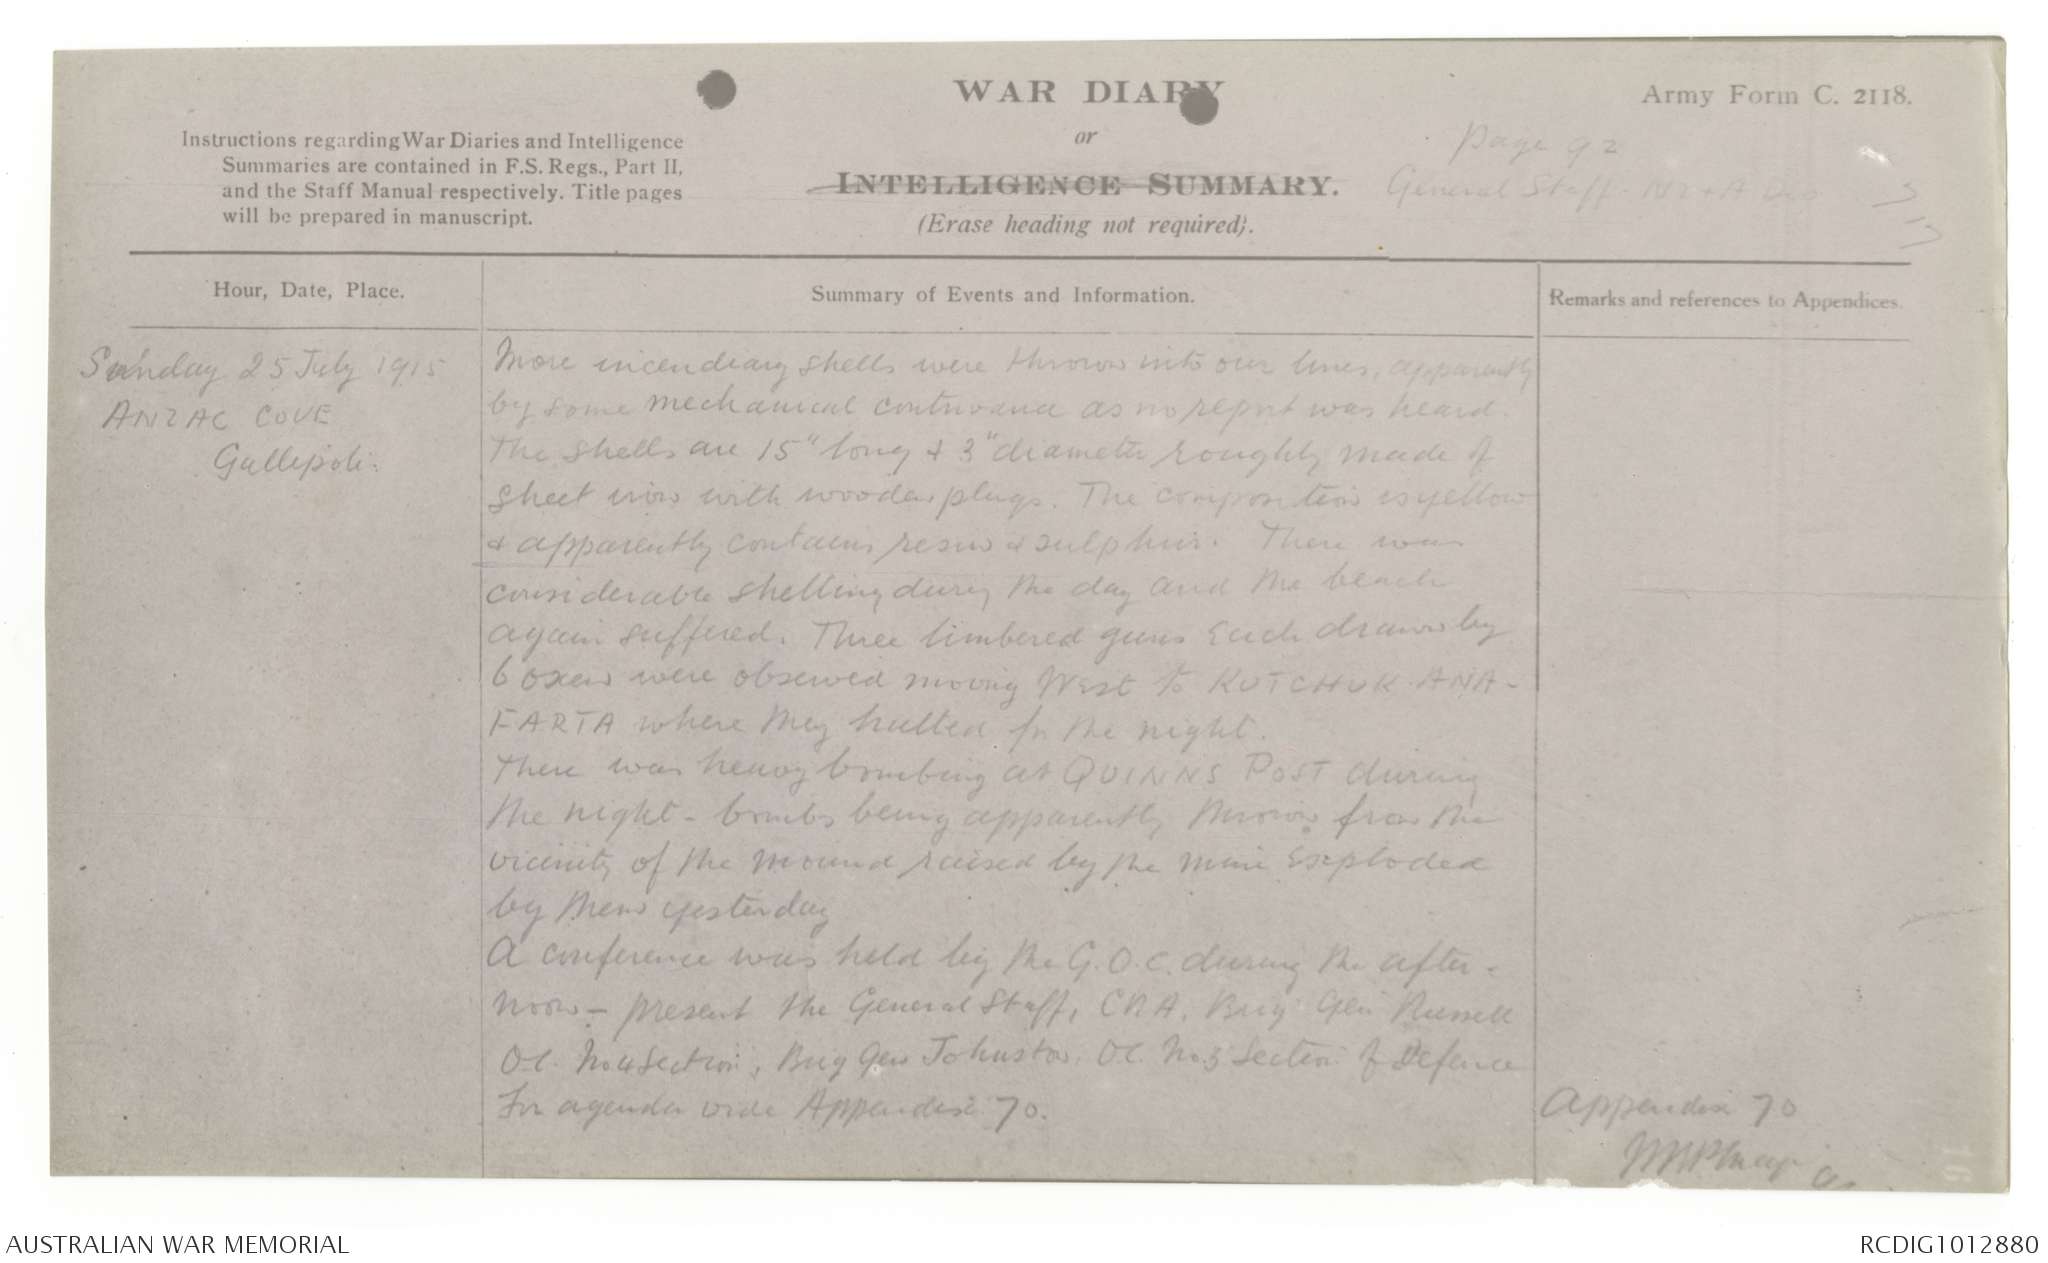 WAR DIARY
or
INTELLIGENCE SUMMARY.
(Erase heading not required).
Army Form C. 2118.
Instructions regarding War Diaries and Intelligence
Summaries are contained in F.S. Regs., Part II,
and the Staff Manual respectively. Title pages
will be prepared in manuscript.
Page 92
General Staff. NZ & A Div
Hour, Date, Place.
Summary of Events and Information.
Remarks and references to Appendices.
Sunday 25 July 1915
ANZAC COVE
Gallipoli.
More incendiary shells were thrown into our lines, apparently
by some mechanical contrivance as no report was heard.
The shells are 15" long & 3" diameter roughly made of
sheet iron with wooden plugs. The composition is yellow
& apparently contains resin & sulphur. There was
considerable shelling during the day and the beach
again suffered. Three limbered guns each drawn by
6 oxen were observed moving West to KUTCHUK ANA-
FARTA where they halted for the night.
There was heavy bombing at QUINNS POST during
the night - bombs being apparently thrown from the
vicinity of the mound raised by the mine exploded
by them yesterday
A conference was held by the G.O.C. during the after-
noon - present the General Staff, CRA, Brig Gen Russell
OC. No 4 Section, Brig Gen Johnston. OC. No.3 Section of Defence
For agenda vide Appendix 70.
Appendix 70
AUSTRALIAN WAR MEMORIAL
RCDIG1012880